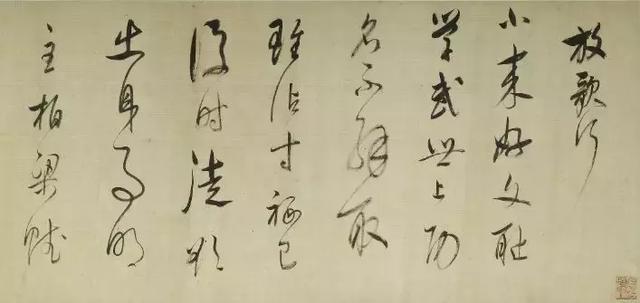 放歌行
小来好文耻
学武世上功
名不解取
雖沾寸禄已
後时徒欲
出身事明
主柏梁賦